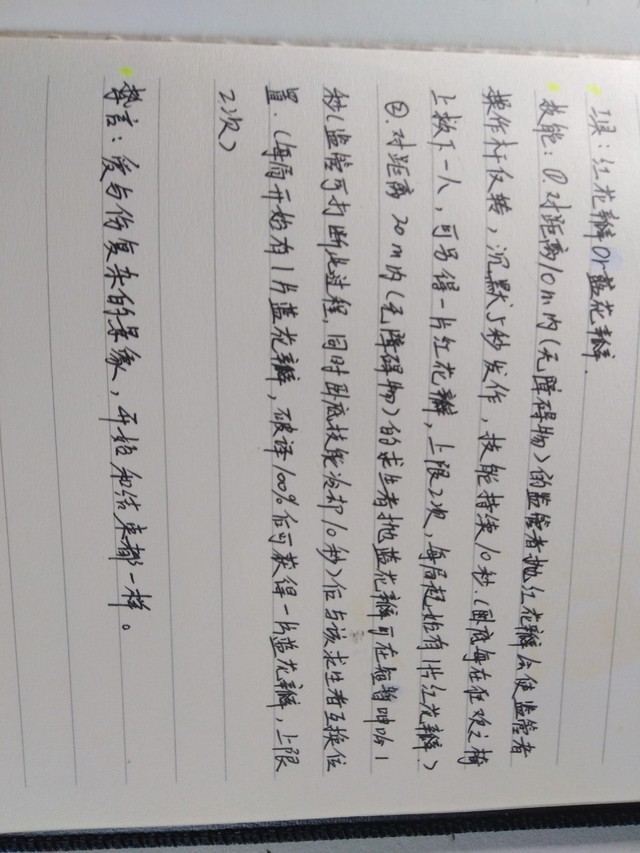 工具：红花瓣or蓝花瓣.
技能：①.对距离10m内（无障碍物）的监管者抛红花瓣会使监管者
操作杆反转，沉默5秒发作，技能持续10秒.（卧底每在狂欢之椅
上救下一人，可另得一片红花瓣，上限2次，每局起始有1片红花瓣.）
②.对距离20m内（无障碍物）的求生者抛蓝花瓣可在短暂呻吟1
秒（监管可打断此过程，同时卧底技能冷却10秒）后与该求生者互换位
置.（每局开始有1片蓝花瓣，破译100%后可获得一片蓝花瓣，上限
2次）
誓言：爱与伤复杂的景象，开始和结束都一样。